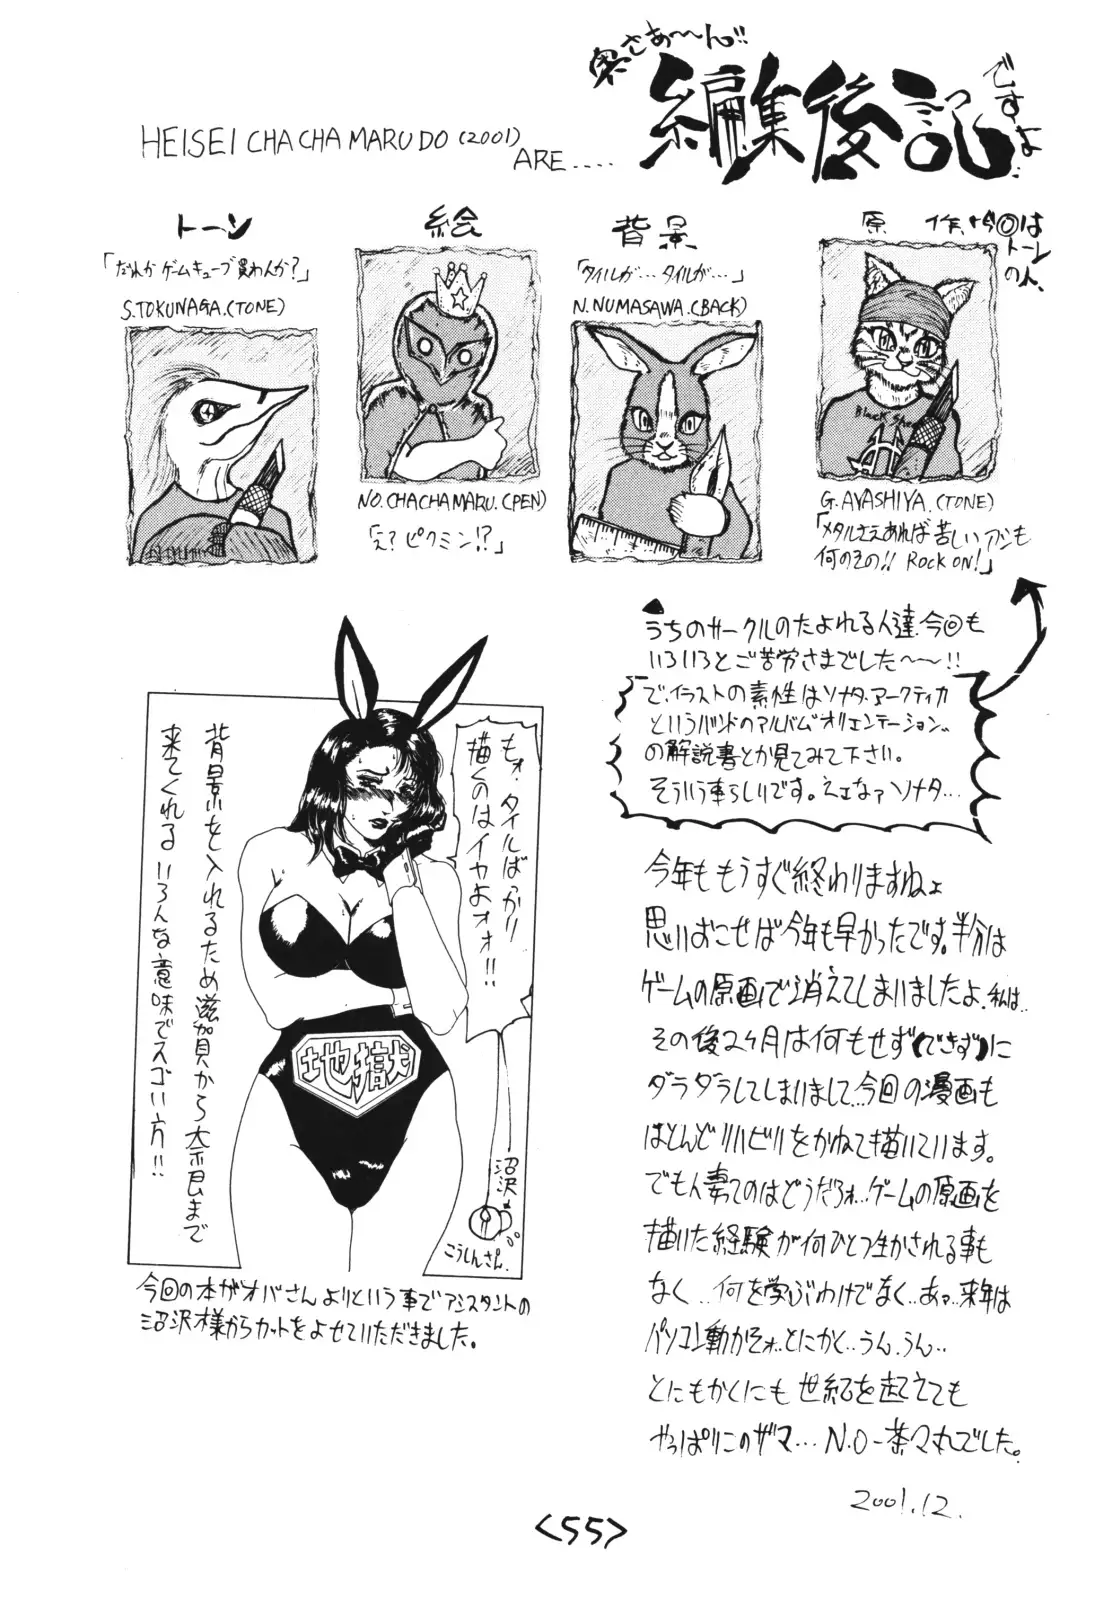 奥さあ〜〜ん!!
編集後記
ですよ…
HEISEI CHACHAMARUDO (2001)
ARE.....
トーン
「だれかゲームキューブ買わんか?」
S.TOKUNAGA.(TONE)
絵
NO.CHACHAMARU.(PEN)
「え?ピクミン!?」
背景
「タイルが…タイルが…」
N.NUMASAWA.(BACK)
原作.今回は
トーン
の人.
Black Sheep
G.AYASHIYA.(TONE)
「メタルさえあれば苦しいアシも
何のその!! ROCK ON!」
うちのサークルのたよれる人達.今回も
いろいろとご苦労さまでした〜〜!!
で.イラストの素性はソナタ.アークティカ
というバンドのアルバム"オリエンテーション"
の解説書とか見てみて下さい。
そういう事らしいです。ええなァソナタ…
もォ.タイルばかり
描くのはイヤよォォ!!
背景を入れるため滋賀から奈良まで
来てくれるいろんな意味でスゴい方!!
地獄
沼沢
こうしんさん.
今回の本がオバさんよりという事でアシスタントの
沼沢様からカットをよせていただきました。
今年ももうすぐ終わりますねょ
思いおこせば今年も早かったです。半分は
ゲームの原画で消えてしまいましたよ.私は..
その後2ヶ月は何もせず(できず)に
ダラダラしてしまいまして…今回の漫画も
ほとんどリハビリをかねて描いています。
でも人妻てのはどうだろォ…ゲームの原画を
描いた経験が何ひとつ生かされる事も
なく...何を学ぶわけでなく..あァ..来年は
パソコン動かそォ..とにかく..うん.うん..
ともかくにも世紀を越えても
やっぱりこのザマ…N.O-茶々丸でした。
2001.12.
<55>